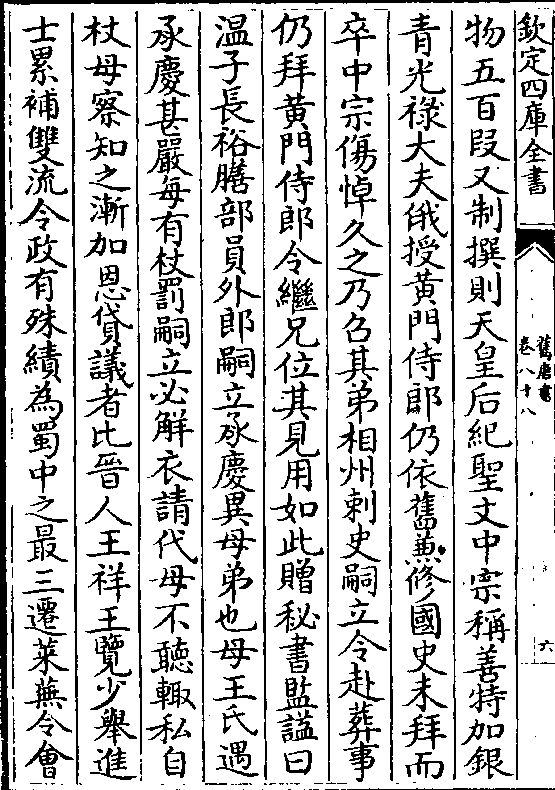 欽定四庫全書
舊唐書
卷八十八
六
物五百段又制撰則天皇后紀聖文中宗稱善特加銀
青光祿大夫俄授黃門侍郎仍依舊兼修國史未拜而
卒中宗傷悼久之乃召其弟相州刺史嗣立令赴葬事
仍拜黃門侍郎令繼兄位其見用如此贈秘書監謚曰
温子長裕膳部員外郎嗣立承慶異母弟也母王氏遇
承慶甚嚴每有杖罰嗣立必解衣請代母不聽輙私自
杖母察知之漸加恩貸議者比晉人王祥王覽少舉進
士累補雙流令政有殊績為蜀中之最三遷萊蕪令會